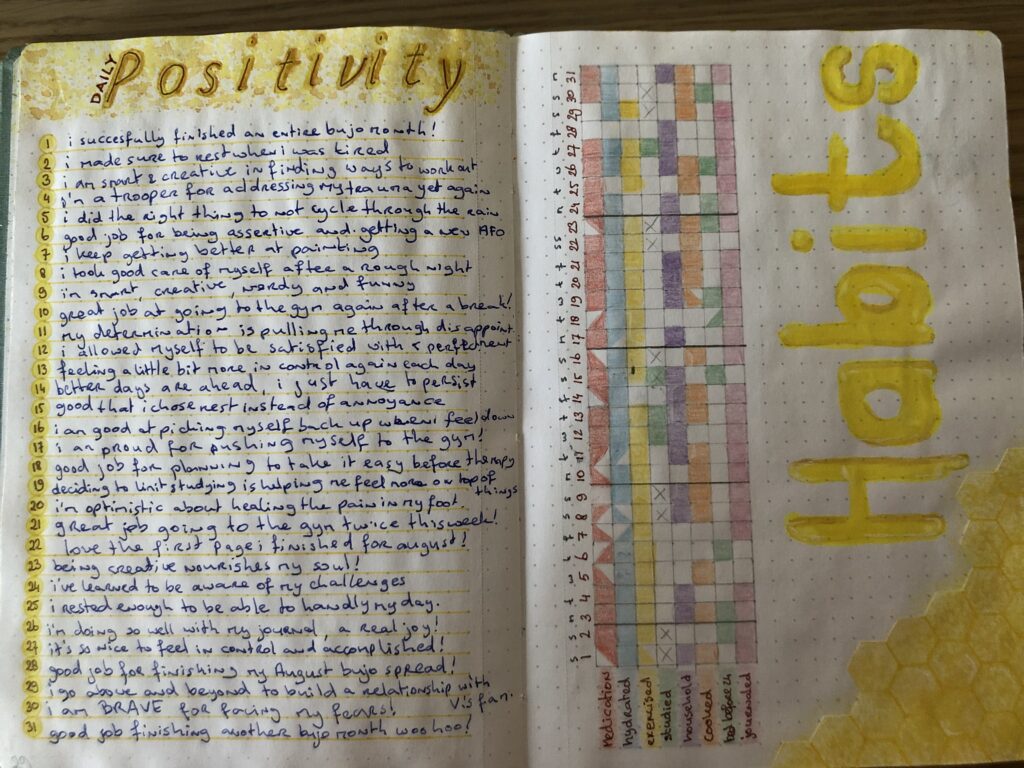 DAILY Positivity
1 i succesfully finished an entire bujo month!
2 i made sure to rest when i was tired
3 i am smart & creative in finding ways to work out
4 i'm a trooper for addressing my trauma yet again
5 i did the right thing to not cycle through the rain
6 good job for being assertive and getting a new AFO
7 i keep getting better at painting
8 i took good care of myself after a rough night
9 i'm smart, creative, nerdy and funny
10 great job at going to the gym again after a break!
11 my determination is pulling me through disappoint-
12 i allowed myself to be satisfied with < perfect ment
13 feeling a little bit more in control again each day
14 better days are ahead, i just have to persist
15 good that i chose rest instead of annoyance
16 i am good at picking myself back up when i feel down
17 i am proud for pushing myself to the gym!
18 good job for planning to take it easy before therapy
19 deciding to limit studying is helping me feel more on top of things
20 i'm optimistic about healing the pain in my foot
21 great job going to the gym twice this week!
22 love the first page i finished for august!
23 being creative nourishes my soul!
24 i've learned to be aware of my challenges
25 i rested enough to be able to handly my day.
26 i'm doing so well with my journal, a real joy!
27 it's so nice to feel in control and accomplished!
28 good job for finishing my August bujo spread!
29 i go above and beyond to build a relationship with
30 i am BRAVE for facing my fears! V's fam.
31 good job finishing another bujo month woohoo!
Habits
s s m t w t f s s m t w t f s s m t w t f s s m t w t f s s m
1 2 3 4 5 6 7 8 9 10 11 12 13 14 15 16 17 18 19 20 21 22 23 24 25 26 27 28 29 30 31
Medication
hydrated
exercised
studied
household
cooked
bed before 24
journaled